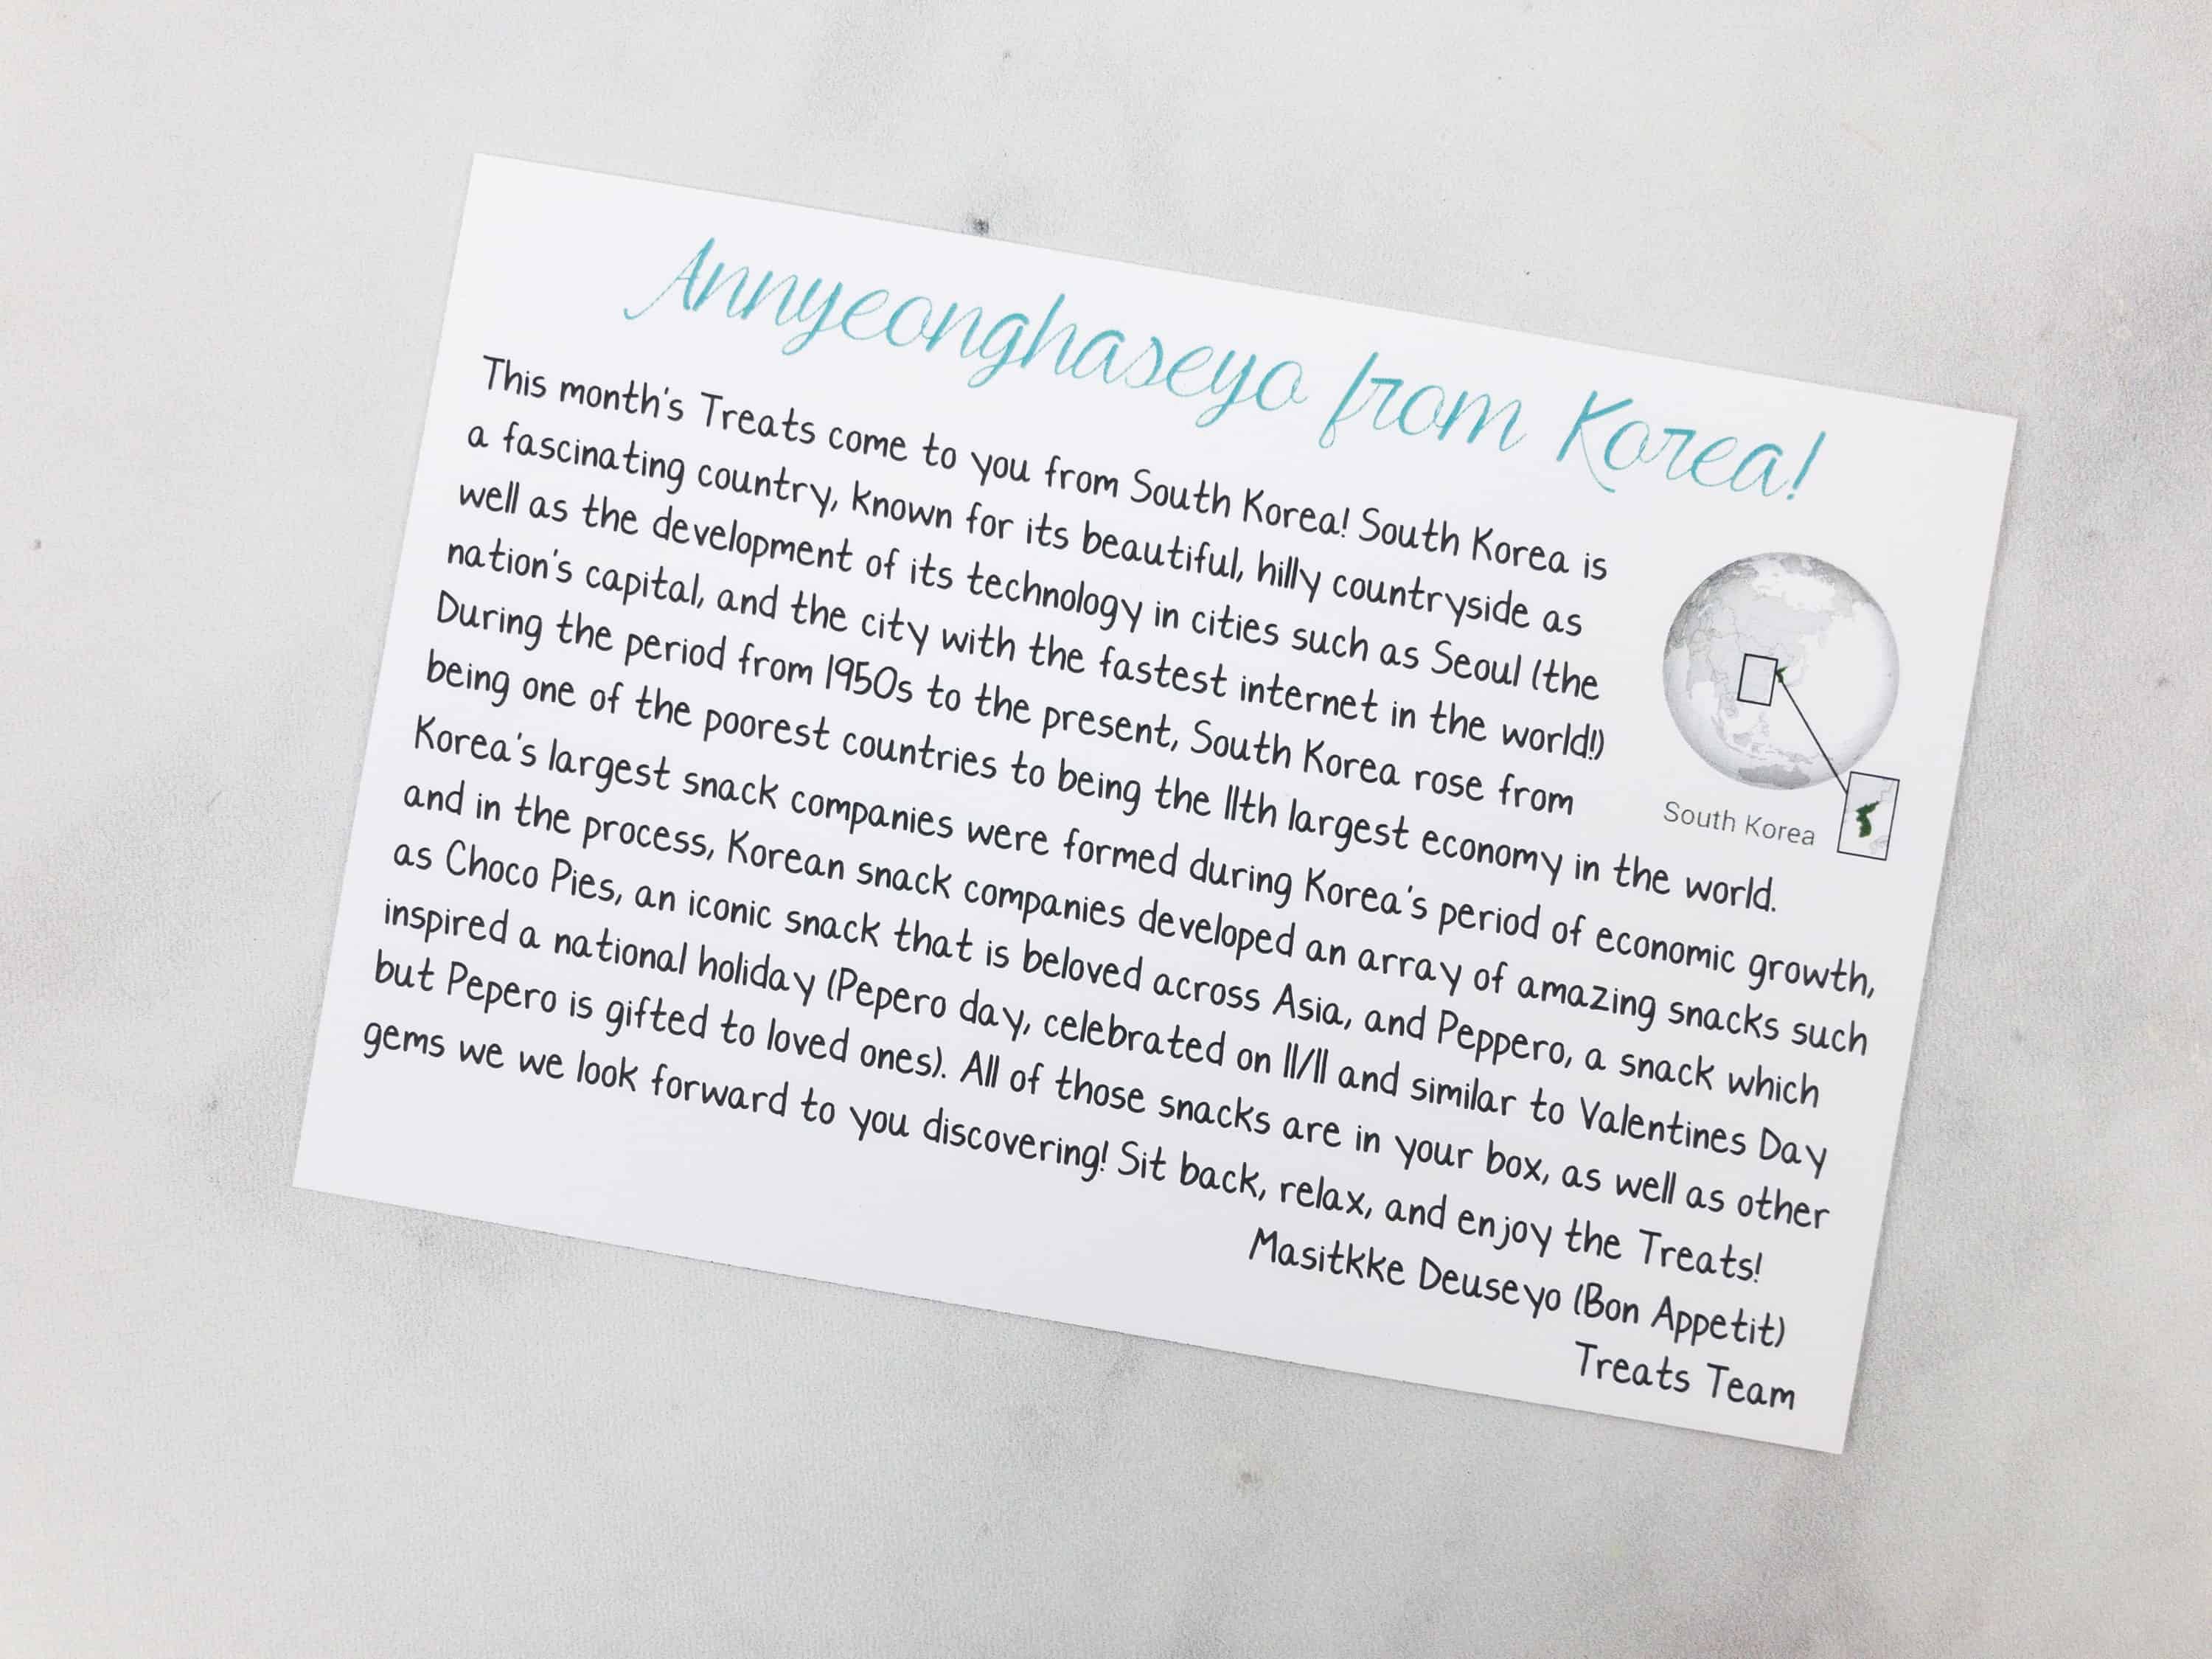 Annyeonghaseyo from Korea!
This month's Treats come to you from South Korea! South Korea is
a fascinating country, known for its beautiful, hilly countryside as
well as the development of its technology in cities such as Seoul (the
nation's capital, and the city with the fastest internet in the world!)
During the period from 1950s to the present, South Korea rose from
being one of the poorest countries to being the 11th largest economy in the world.
Korea's largest snack companies were formed during Korea's period of economic growth,
and in the process, Korean snack companies developed an array of amazing snacks such
as Choco Pies, an iconic snack that is beloved across Asia, and Peppero, a snack which
inspired a national holiday (Pepero day, celebrated on 11/11 and similar to Valentines Day
but Pepero is gifted to loved ones). All of those snacks are in your box, as well as other
gems we we look forward to you discovering! Sit back, relax, and enjoy the Treats!
Masitkke Deuseyo (Bon Appetit)
Treats Team
South Korea